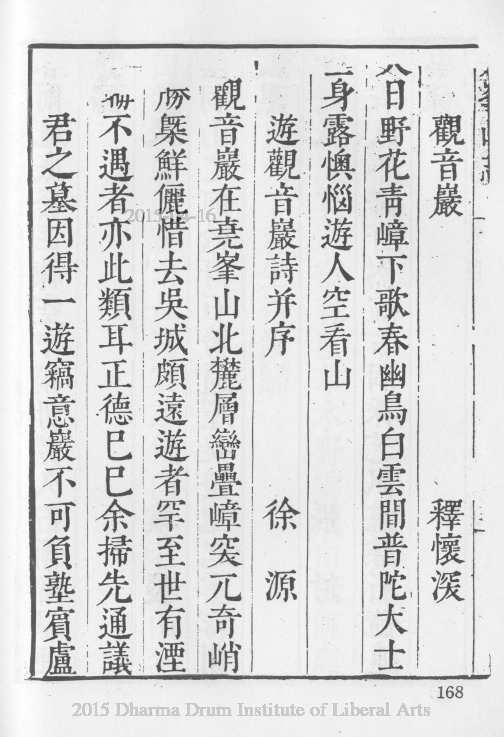 觀音巖 釋懷深
日野花靑嶂下歌春幽鳥白雲間普陀大士
一身露懊惱遊人空看山
遊觀音巖詩并序
徐源
觀音巖在堯峯山北麓層巒疊嶂突兀奇峭
臬鮮儷惜去吳城頗遠遊者罕至世有湮
不遇者亦此類耳正德巳巳余掃先通議
君之墓因得一遊竊意巖不可負塾賓盧
2015-03-16
168
2015 Dharma Drum Institute of Liberal Arts